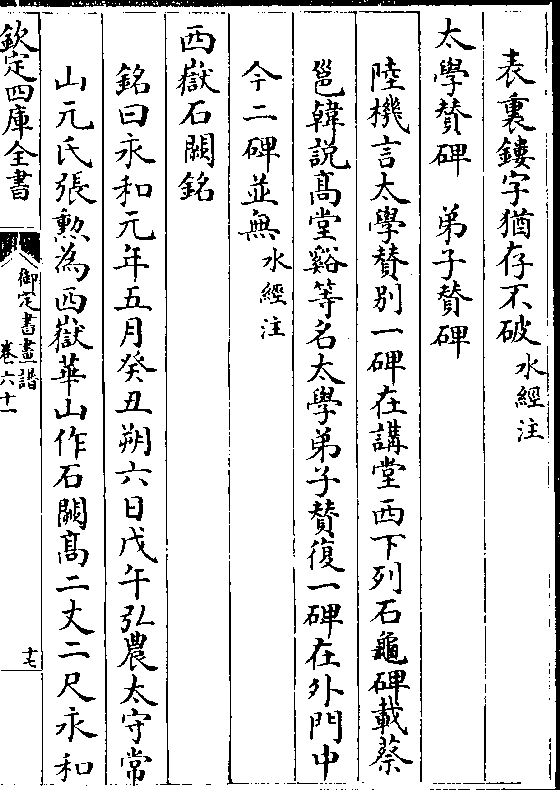 表裏鏤字猶存不破水經注
太學贊碑　弟子贊碑
陸機言太學贊别一碑在講堂西下列石龜碑載蔡
邕韓説髙堂谿等名太學弟子贊復一碑在外門中
今二碑並無水經注
西嶽石闕銘
銘曰永和元年五月癸丑朔六日戊午弘農太守常
山元氏張勲為西嶽華山作石闕髙二丈二尺永和
欽定四庫全書
御定書畫譜
卷六十一
十七